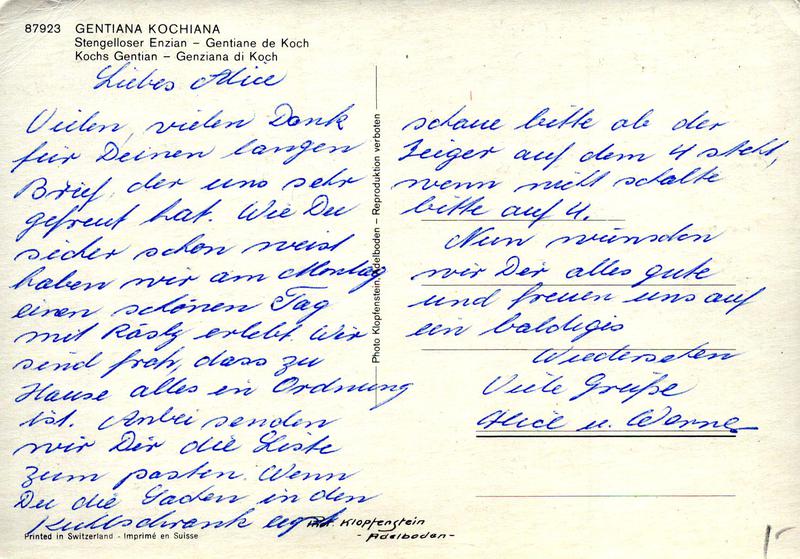 87923 GENTIANA KOCHIANA
Stengelloser Enzian – Gentiane de Koch
Kochs Gentian – Genziana di Koch
Liebes Alice
Vielen, vielen Dank
für Deinen langen
Brief, der uns sehr
gefreut hat. Wie Du
sicher schon weist
haben wir am Montag
einen schönen Tag
mit Rösly erlebt. Wir
sind froh, dass zu
Hause alles in Ordnung
ist. Anbei senden
wir Dir die Liste
zum posten. Wenn
Du die Sachen in den
Kühlschrank legst
schaue bitte ob der
Zeiger auf dem 4 steht,
wenn nicht schalte
bitte auf 4.
Nun wünschen
wir Dir alles gute
und freuen uns auf
ein baldiges
Wiedersehen
Viele Grüße
Alice u. Werne
Photo Klopfenstein, Adelboden – Reproduktion verboten
Printed in Switzerland - Imprimé en Suisse
Klopfenstein
- Adelboden -